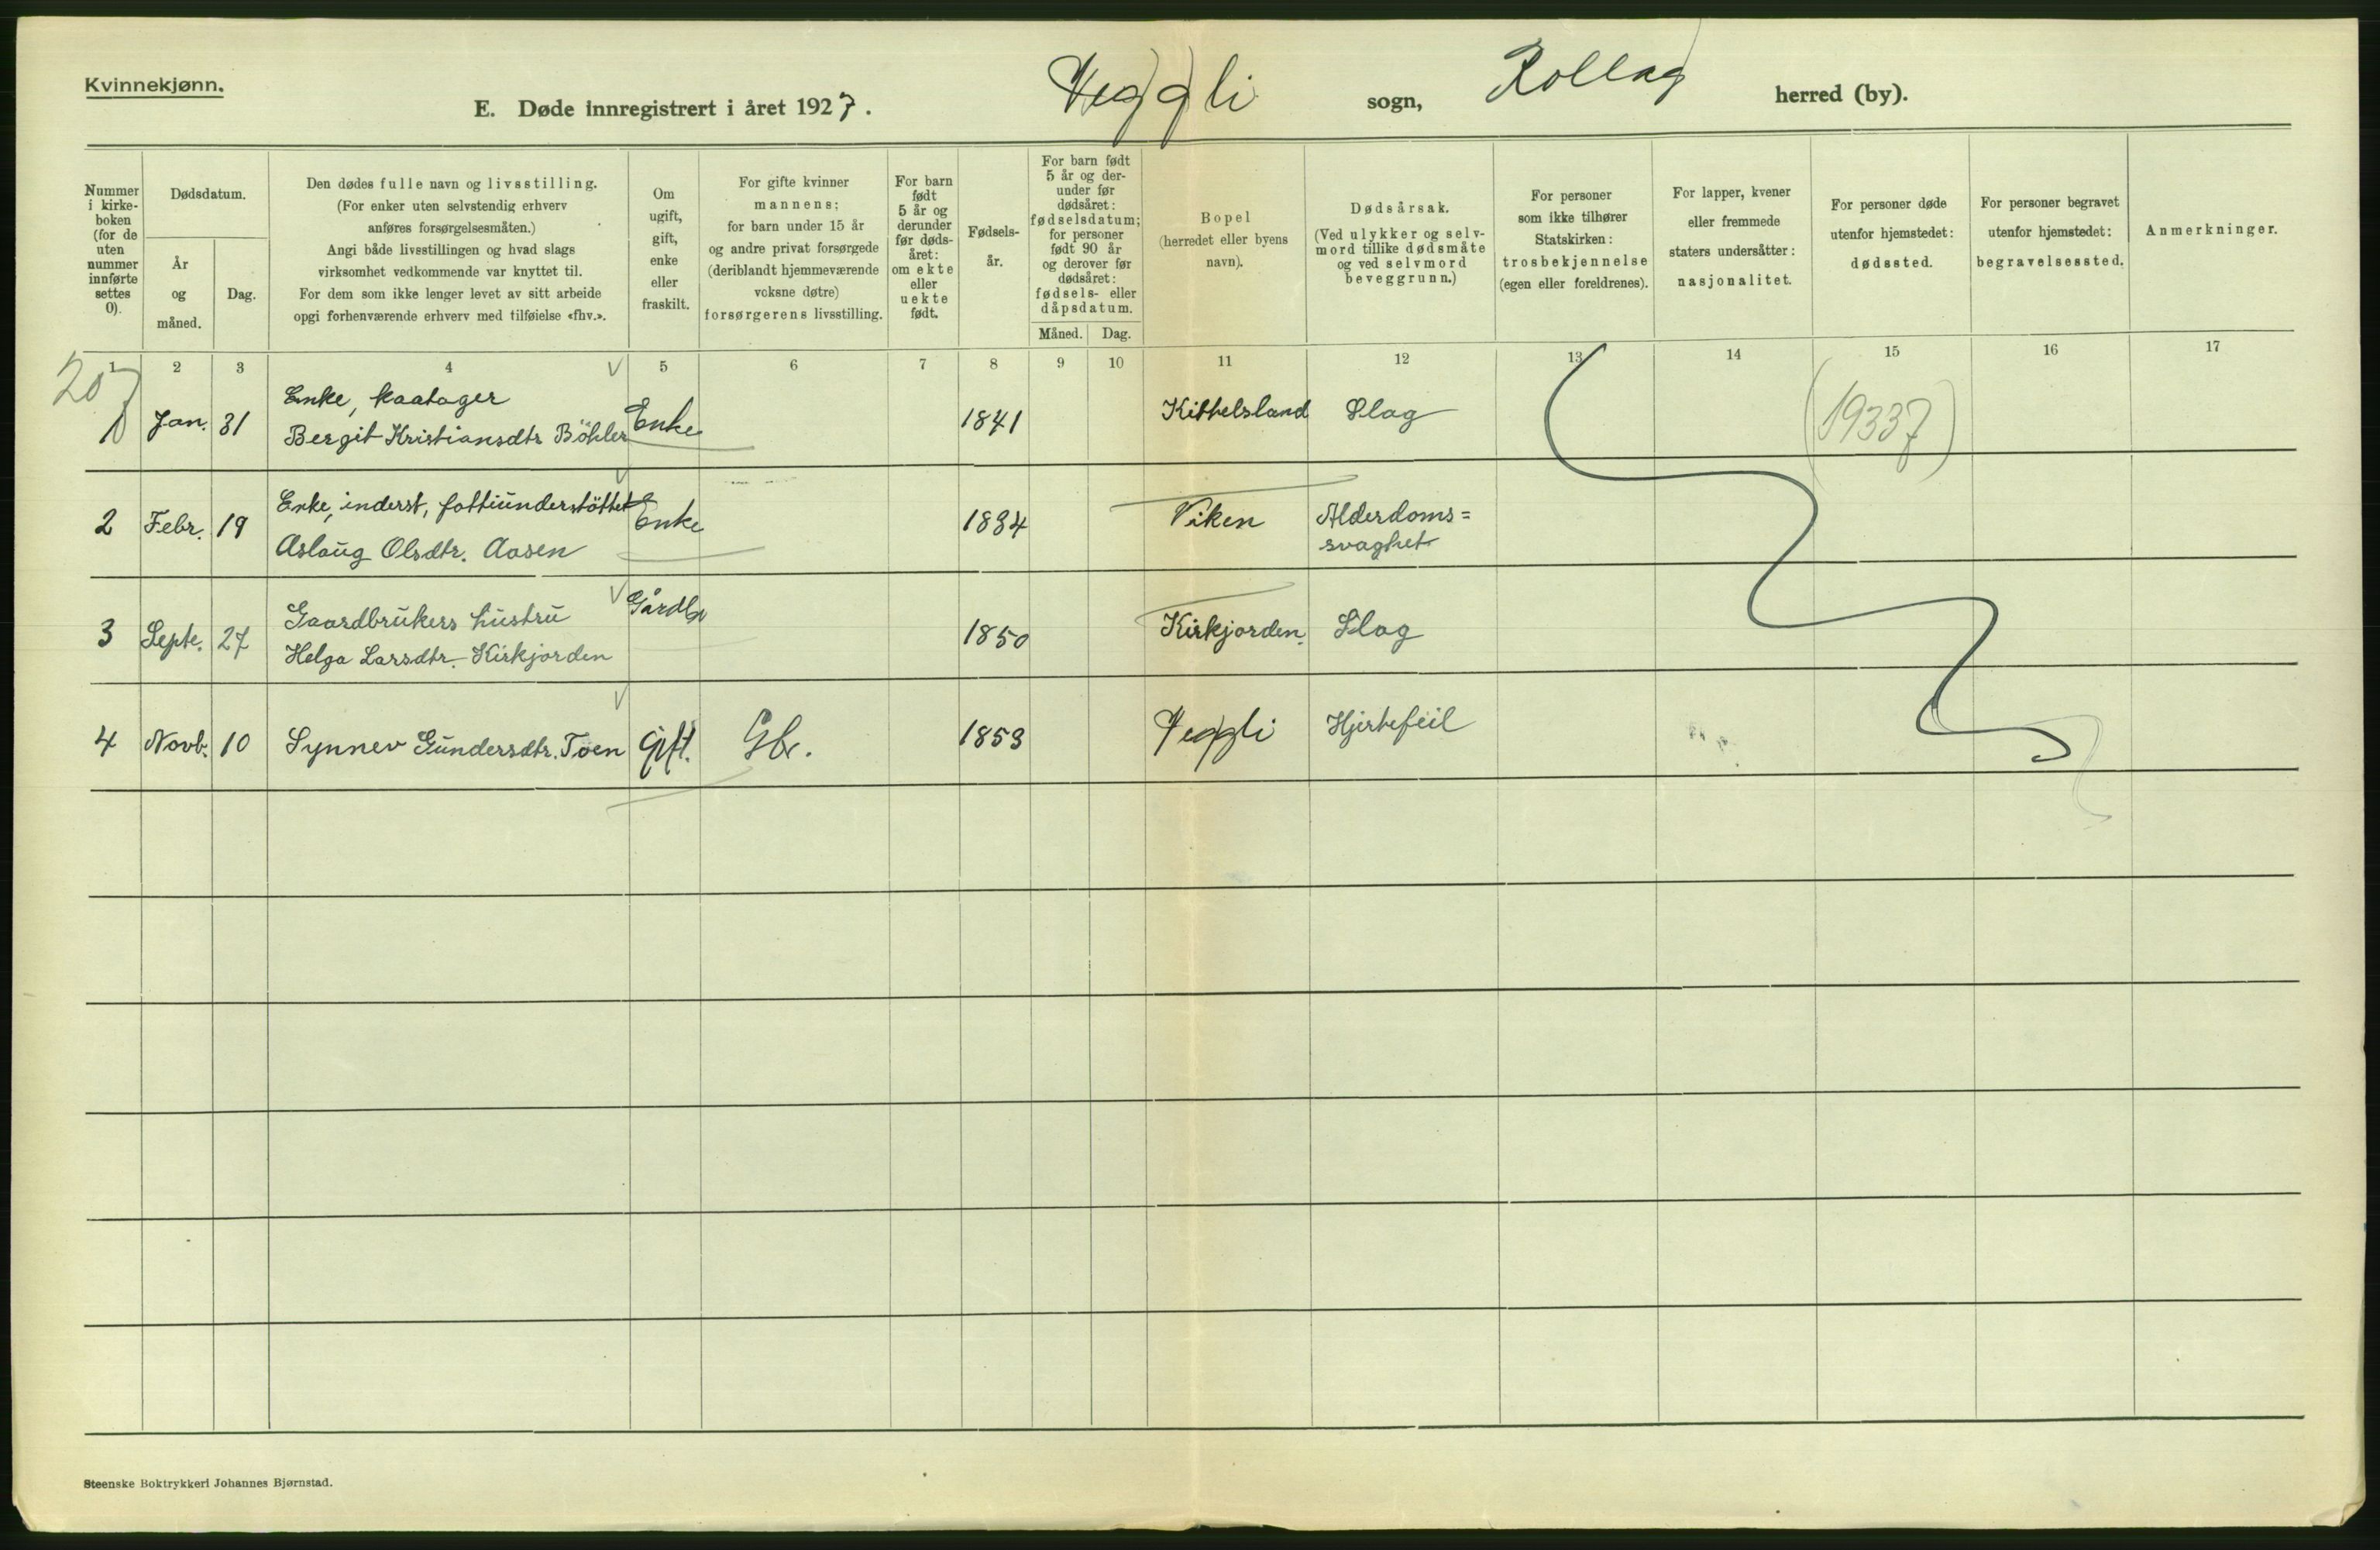 Kvinnekjønn.
E. Døde innregistrert i året 1927. Veggli sogn, Rollag herred (by).
Nummer i kirke-boken (for de uten nummer innførte settes 0).
Dødsdatum.
År og måned.
Dag.
Den dødes fulle navn og livsstilling.
(For enker uten selvstendig erhverv
anføres forsørgelsesmåten.)
Angi både livsstillingen og hvad slags
virksomhet vedkommende var knyttet til.
For dem som ikke lenger levet av sitt arbeide
opgi forhenværende erhverv med tilføielse «fhv.».
Om
ugift,
gift,
enke
eller
fraskilt.
For gifte kvinner
mannens;
for barn under 15 år
og andre privat forsørgede
(deriblandt hjemmeværende
voksne døtre)
forsørgerens livsstilling.
For barn
født
5 år og
derunder
før døds-
året:
om ekte
eller
uekte
født.
Fødsels-
år.
For barn født
5 år og der-
under før
dødsåret:
fødselsdatum;
for personer
født 90 år
og derover før
dødsåret:
fødsels- eller
dåpsdatum.
Måned. Dag.
Bopel
(herredet eller byens
navn).
Dødsårsak.
(Ved ulykker og selv-
mord tillike dødsmåte
og ved selvmord
beveggrunn.)
For personer
som ikke tilhører
Statskirken:
trosbekjennelse
(egen eller foreldrenes).
For lapper, kvener
eller fremmede
staters undersåtter:
nasjonalitet.
For personer døde
utenfor hjemstedet:
dødssted.
For personer begravet
utenfor hjemstedet:
begravelsessted.
Anmerkninger.
1 2 3 4 5 6 7 8 9 10 11 12 13 14 15 16 17
207
Enke, kaatager
1 Jan. 31 Bergit Kristiansdtr Böhler Enke 1841 Kittelsland Slag (19337)
Enke, inderst, fattiunderstöttet
2 Febr. 19 Aslaug Olsdtr. Aasen Enke 1834 Viken Alderdoms=
svaghet
Gaardbrukers hustru Gårdbr
3 Septe. 27 Helga Larsdtr. Kirkjorden 1850 Kirkjorden. Slag
4 Novb. 10 Synnev Gundersdtr. Toen gift. Gbr. 1853 Veggli Hjertefeil
Steenske Boktrykkeri Johannes Bjørnstad.